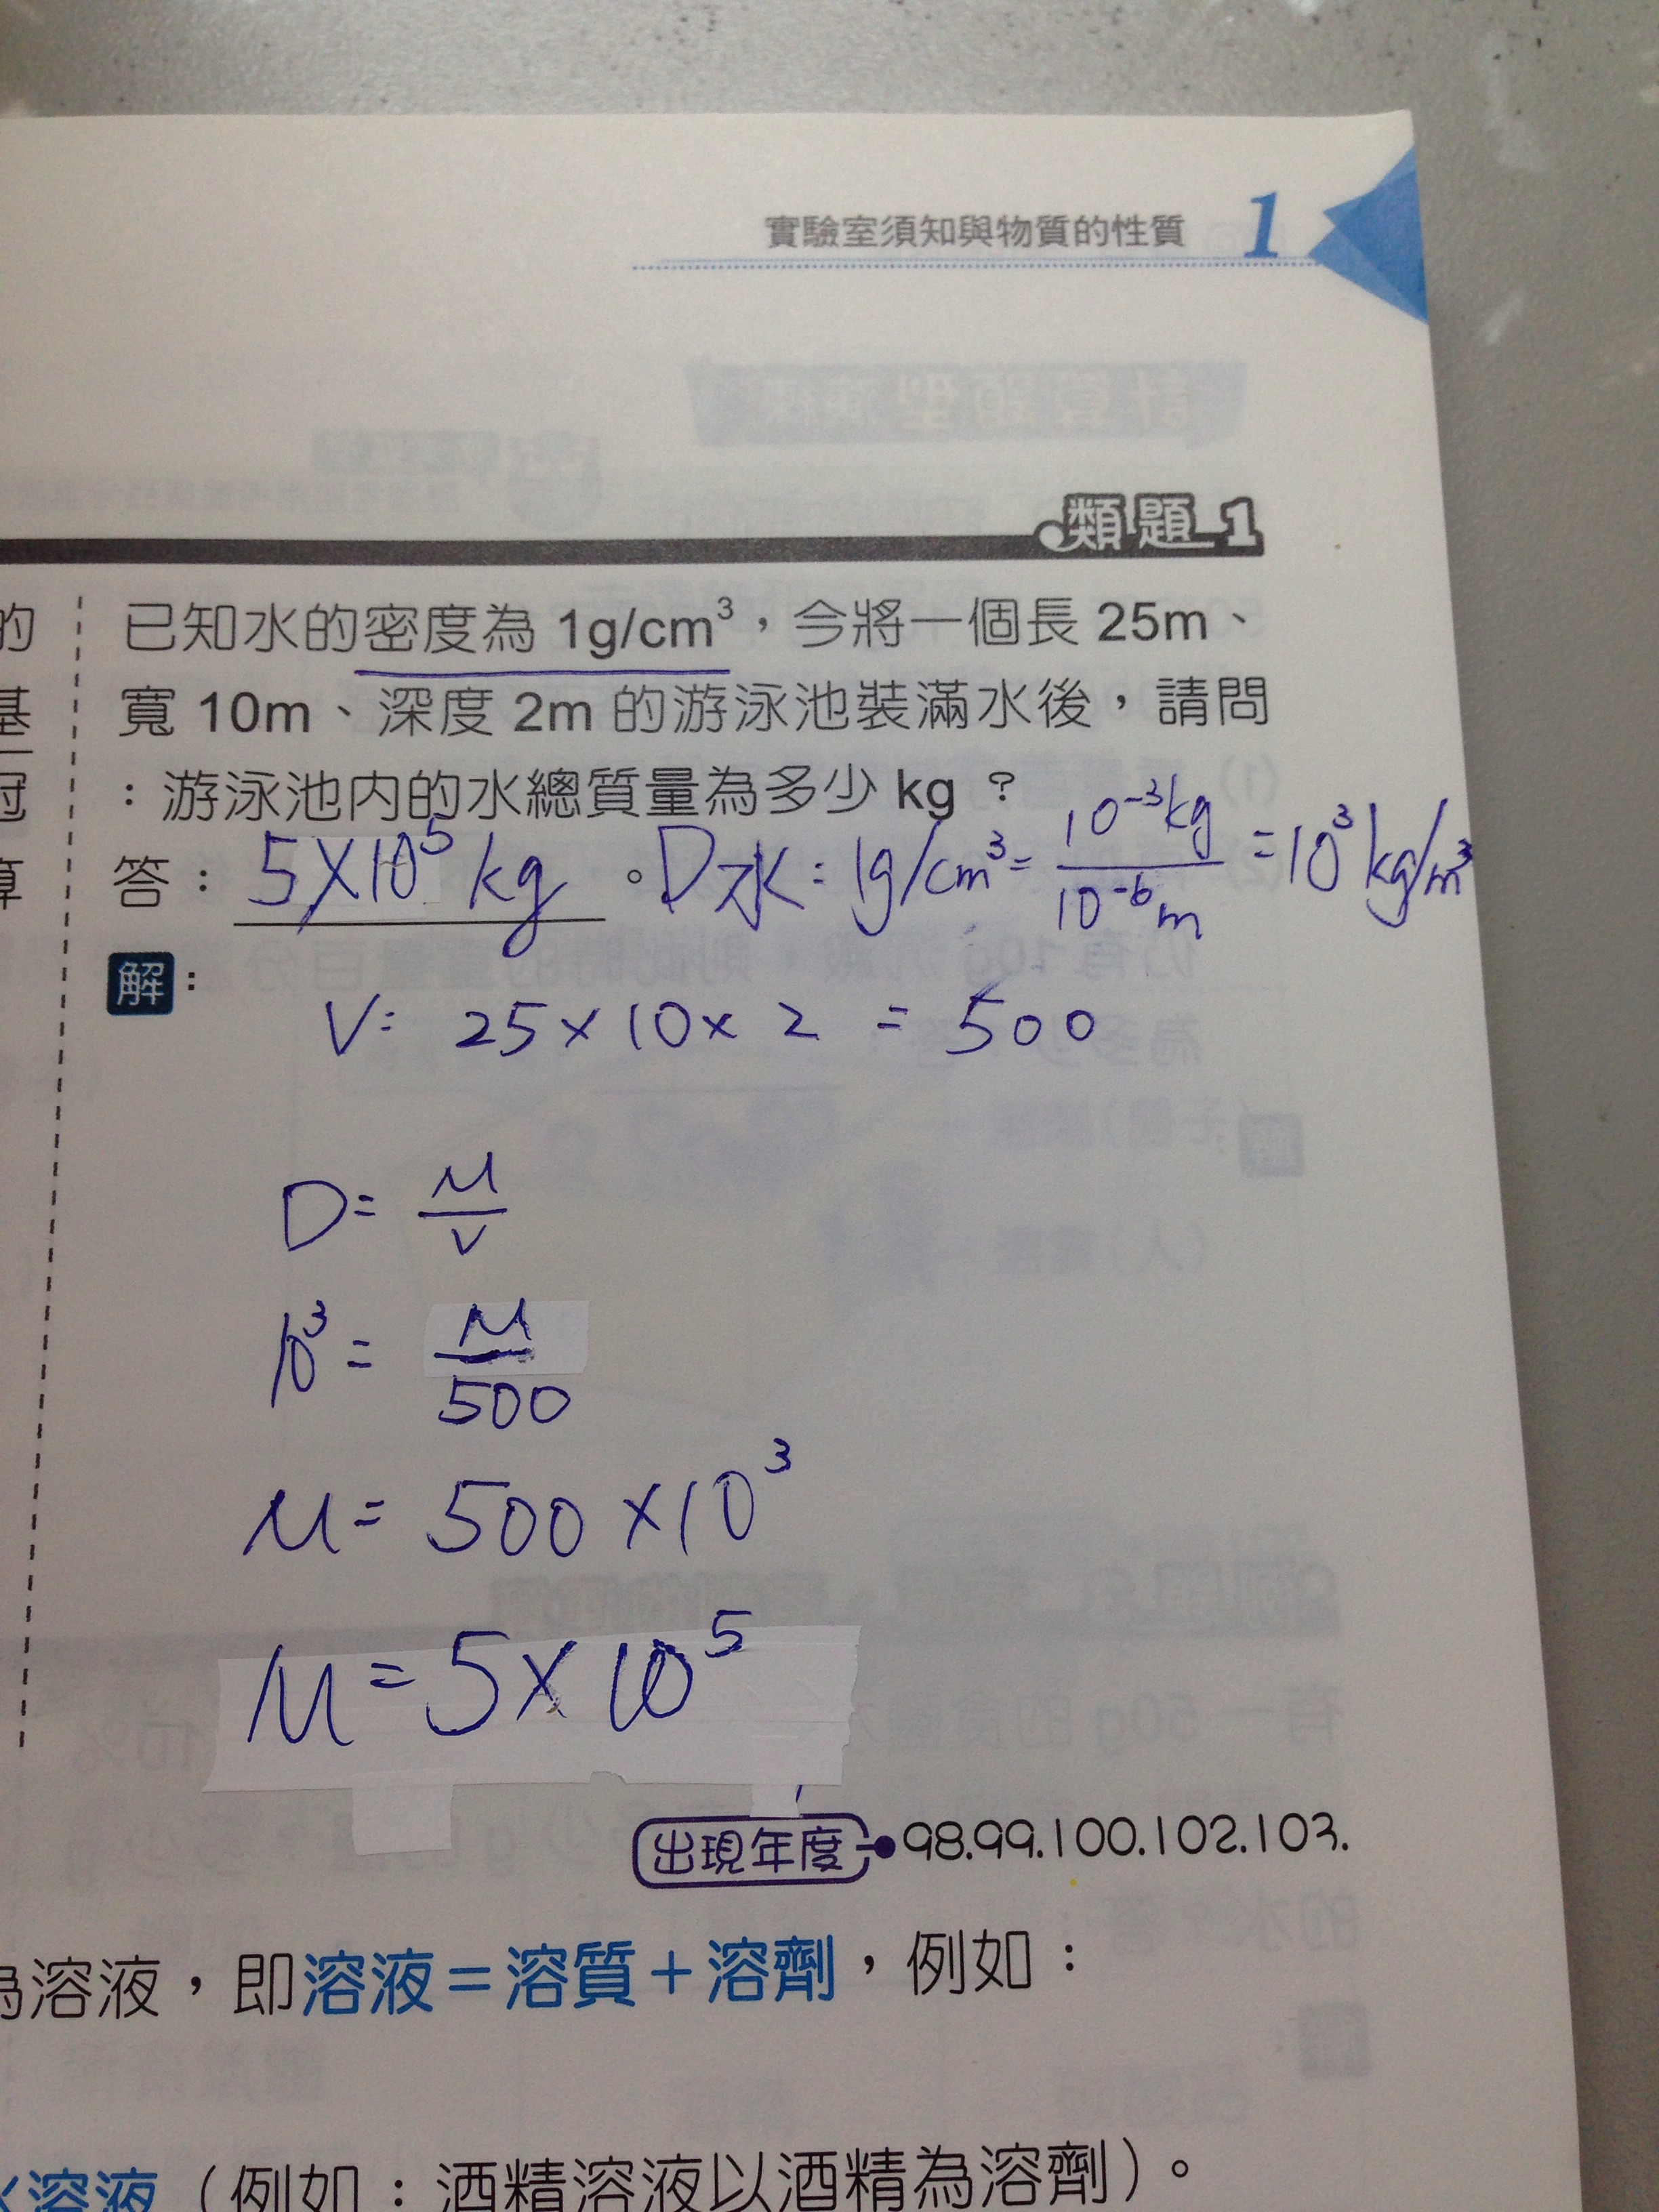 實驗室須知與物質的性質 1
類題 1
的
基
冠
算
已知水的密度為 1g/cm³，今將一個長 25m、
寬 10m、深度 2m 的游泳池裝滿水後，請問
：游泳池內的水總質量為多少 kg ？
答：5×10⁵ kg 。D水=1g/cm³=10⁻³kg/10⁻⁶m=10³kg/m³
解：
V= 25×10×2 = 500
D= M/V
10³= M/500
M= 500×10³
M=5×10⁵
出現年度 98.99.100.102.103.
為溶液，即溶液＝溶質＋溶劑，例如：
溶液（例如：酒精溶液以酒精為溶劑）。